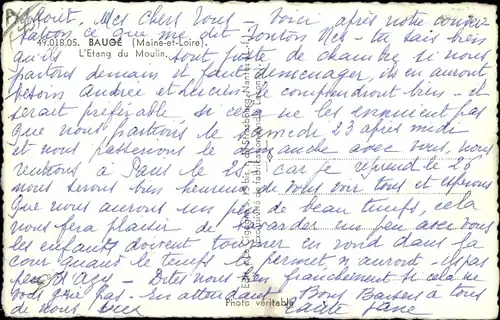 Août. Mes chers Tous - Voici après notre conver
sation ce que me dit Tonton Mes - tu sais bien
49.018.05. BAUGÉ (Maine-et-Loire).
L'Etang du Moulin.
qu'ils sont juste de chambre si nous
partons demain il faut déménager, ils en auront
besoin Andrée et Lucien le comprendront bien - et
serait préférable, si cela ne les ennuient pas
que nous partions le samedi 23 après midi
et nous passerions le dimanche avec vous, nous
rentrons à Paris le 25 car je reprend le 26
nous serons bien heureux de vous voir tous et espérons
que nous aurons un peu de beau temps, cela
nous fera plaisir de bavarder un peu avec vous
les enfants doivent tourner en rond dans la
cour quand le temps le permet n'auront ils pas
peu d'
Dites nous bien franchement si cela ne
vous gêne pas. En attendant Bons Baisers à tous
de nous deux
Tante Jane
Photo véritable